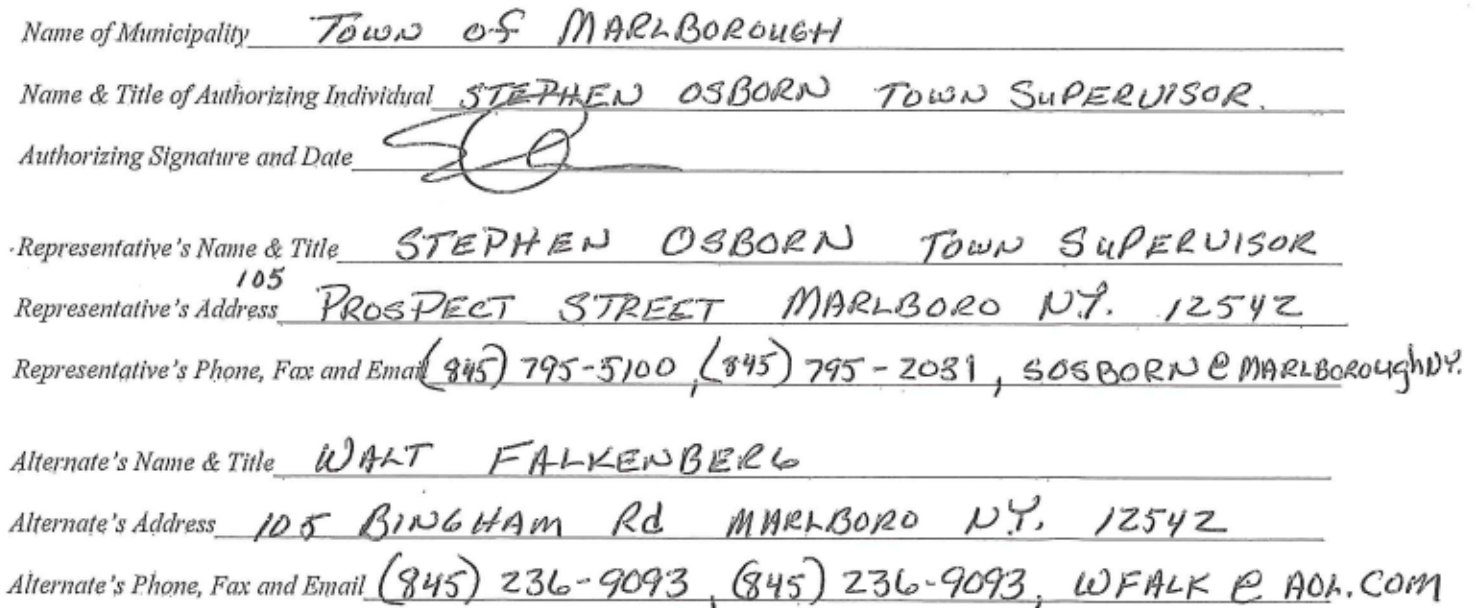 Name of Municipality Town of MARLBOROUGH
Name & Title of Authorizing Individual STEPHEN OSBORN TOWN SUPERVISOR.
Authorizing Signature and Date
Representative's Name & Title STEPHEN OSBORN TOWN SUPERVISOR
105
Representative's Address PROSPECT STREET MARLBORO N.Y. 12542
Representative's Phone, Fax and Email (845) 795-5100, (845) 795-2031, SOSBORN@MARLBOROUGHNY.
Alternate's Name & Title WALT FALKENBERG
Alternate's Address 105 BINGHAM Rd MARLBORO N.Y. 12542
Alternate's Phone, Fax and Email (845) 236-9093, (845) 236-9093, WFALK@AOL.COM